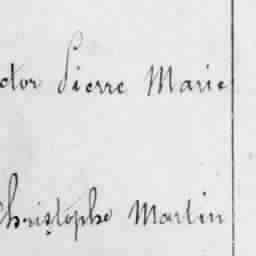 ctor Pierre Marie
Christophe Martin